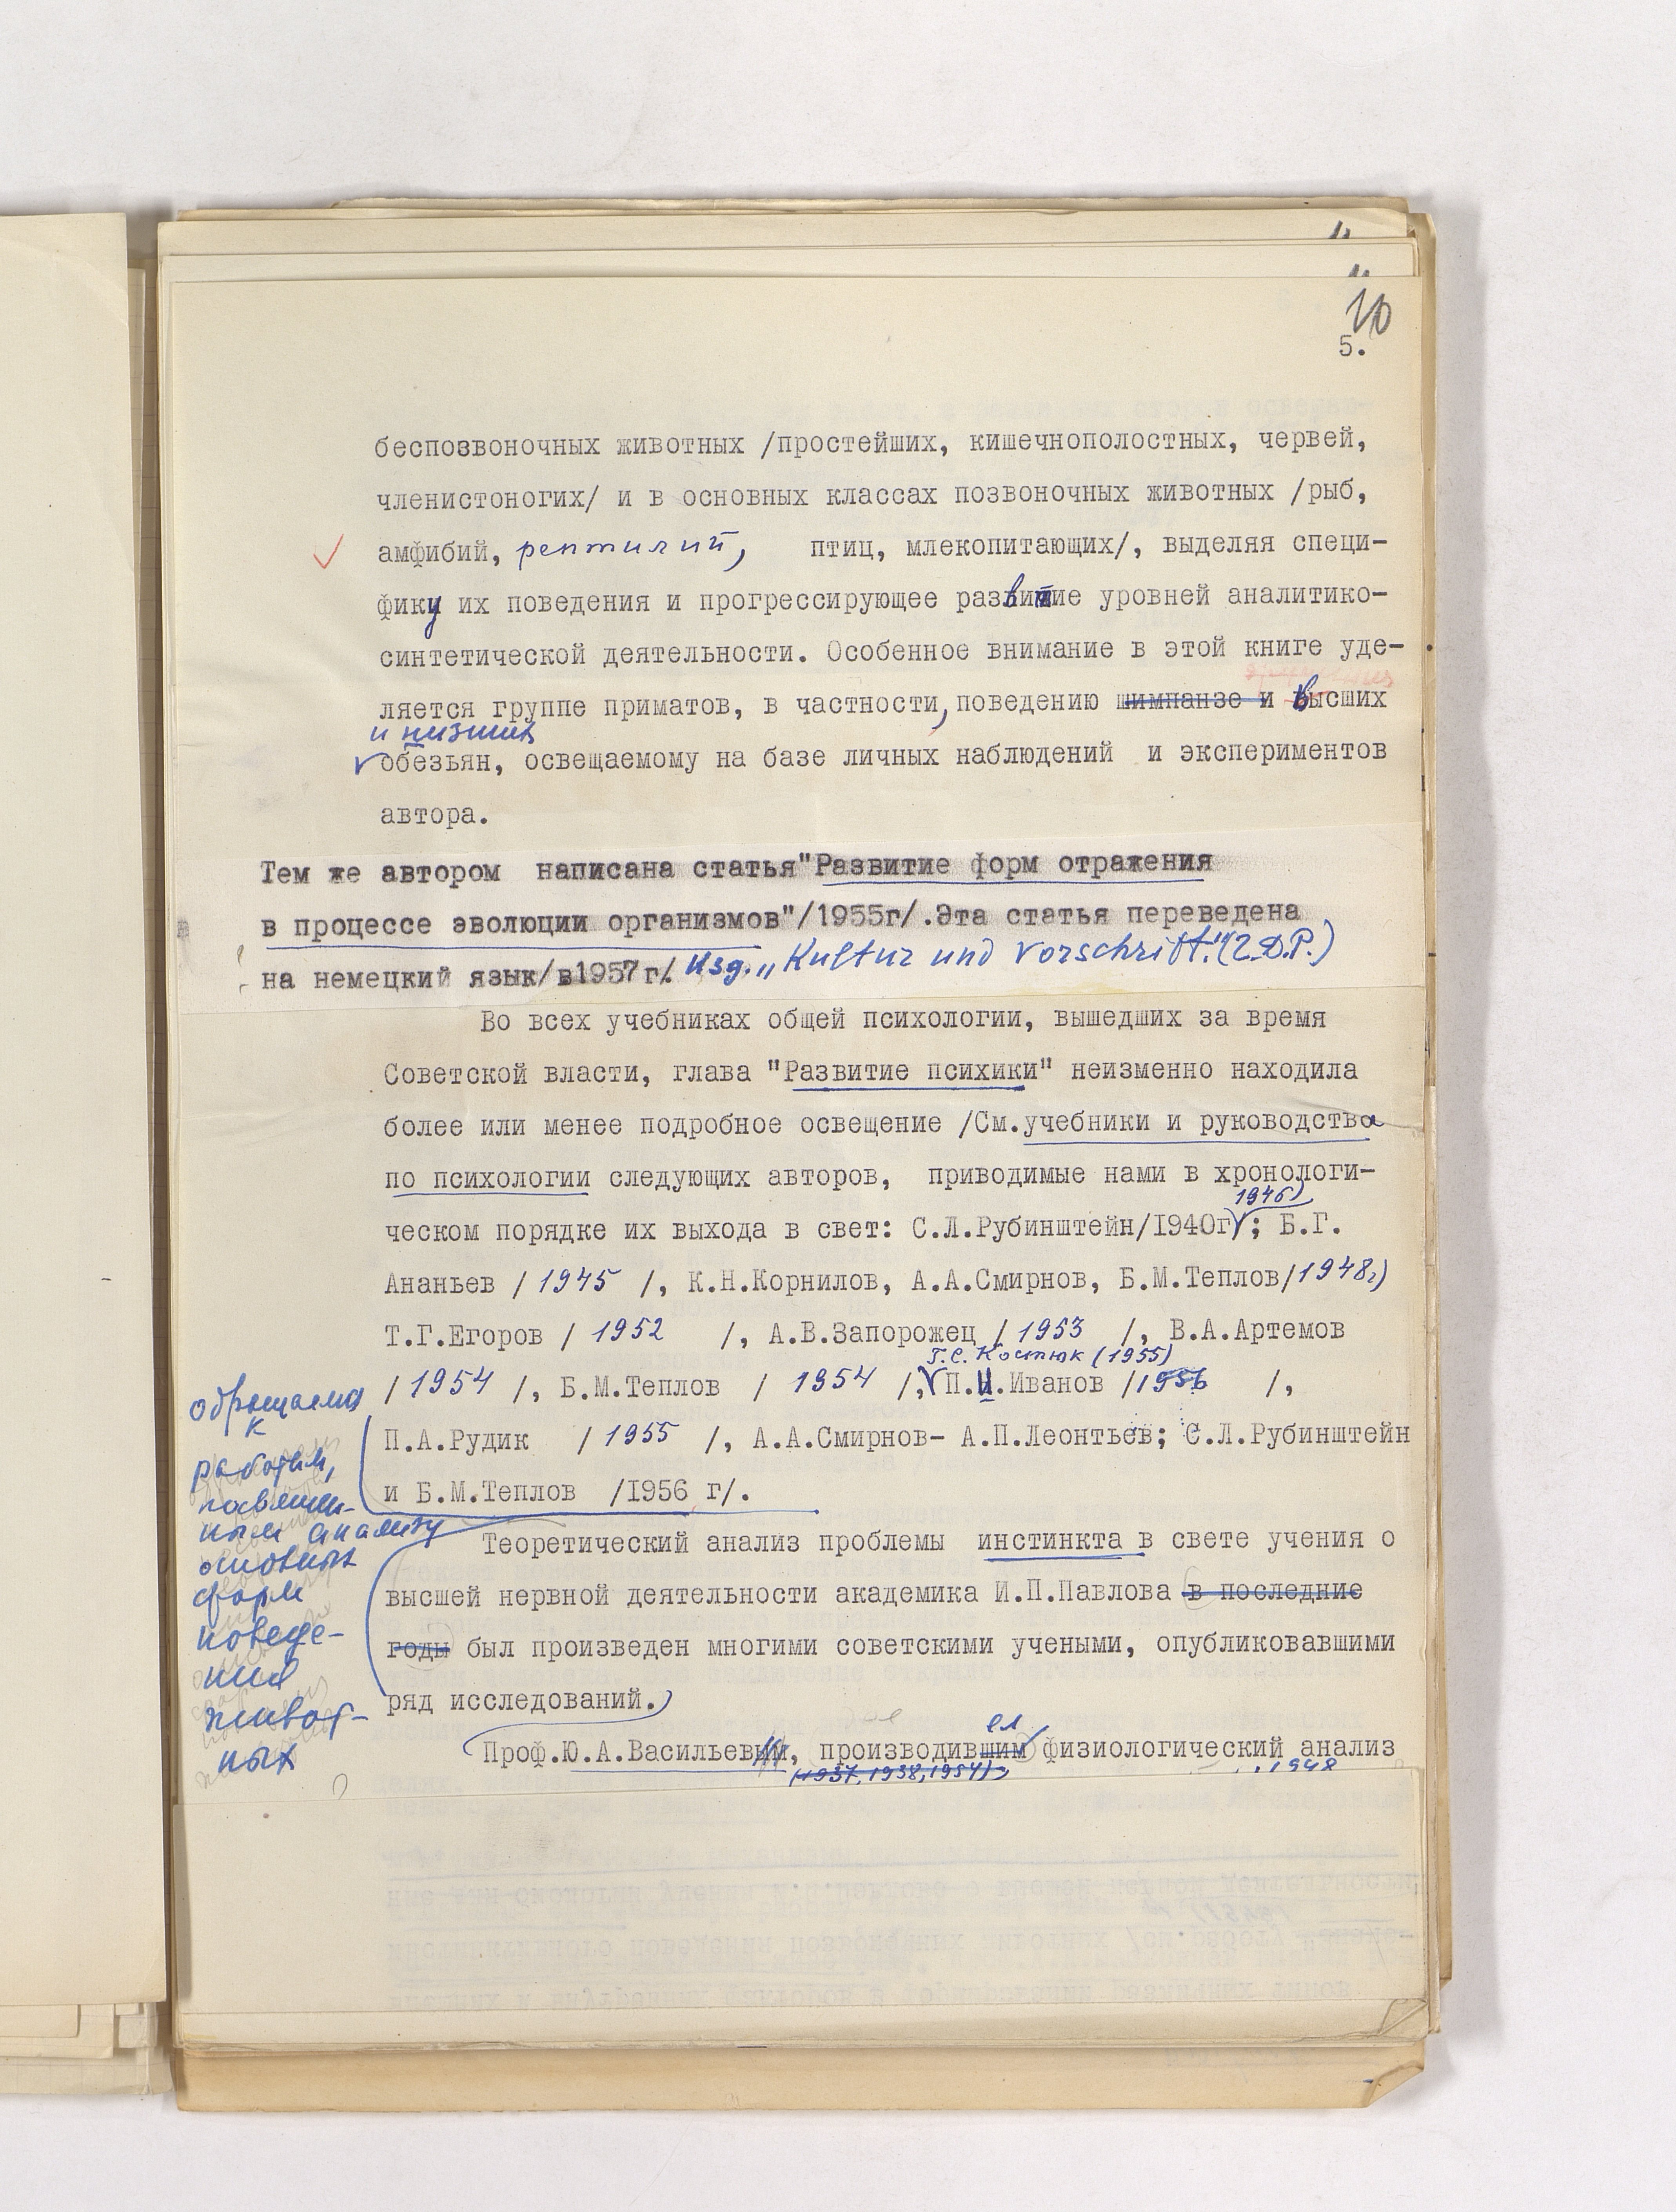 10
5.
беспозвоночных животных /простейших, кишечнополостных, червей,
членистоногих/ и в основных классах позвоночных животных /рыб,
амфибий, рептилий, птиц, млекопитающих/, выделяя специ-
фику их поведения и прогрессирующее развитие уровней аналитико-
синтетической деятельности. Особенное внимание в этой книге уде-
ляется группе приматов, в частности, поведению шимпанзе и высших
и низших
обезьян, освещаемому на базе личных наблюдений и экспериментов
автора.
Тем же автором написана статья "Развитие форм отражения
в процессе эволюции организмов" /1955г/. Эта статья переведена
на немецкий язык /в 1957 г/. Изд. „Kultur und Vorschrift." (2.D.P.)
Во всех учебниках общей психологии, вышедших за время
Советской власти, глава "Развитие психики" неизменно находила
более или менее подробное освещение /См. учебники и руководства
по психологии следующих авторов, приводимые нами в хронологи-
1946)
ческом порядке их выхода в свет: С.Л.Рубинштейн/1940г; Б.Г.
Ананьев / 1945 /, К.Н.Корнилов, А.А.Смирнов, Б.М.Теплов/1948г)
Т.Г.Егоров / 1952 /, А.В.Запорожец / 1953 /, В.А.Артемов
Г.С. Костюк (1955)
/ 1954 /, Б.М.Теплов / 1954 /, П.И.Иванов /1956 /,
П.А.Рудик / 1955 /, А.А.Смирнов- А.П.Леонтьев; С.Л.Рубинштейн
и Б.М.Теплов /1956 г/.
обращаемся
к
работам,
посвящен-
ным анализу
основных
форм
поведе-
ния
живот-
ных
Теоретический анализ проблемы инстинкта в свете учения о
высшей нервной деятельности академика И.П.Павлова в последние
годы был произведен многими советскими учеными, опубликовавшими
ряд исследований.
ел
Проф.Ю.А.Васильевым, производившим физиологический анализ
(1937, 1938, 1954), 1948